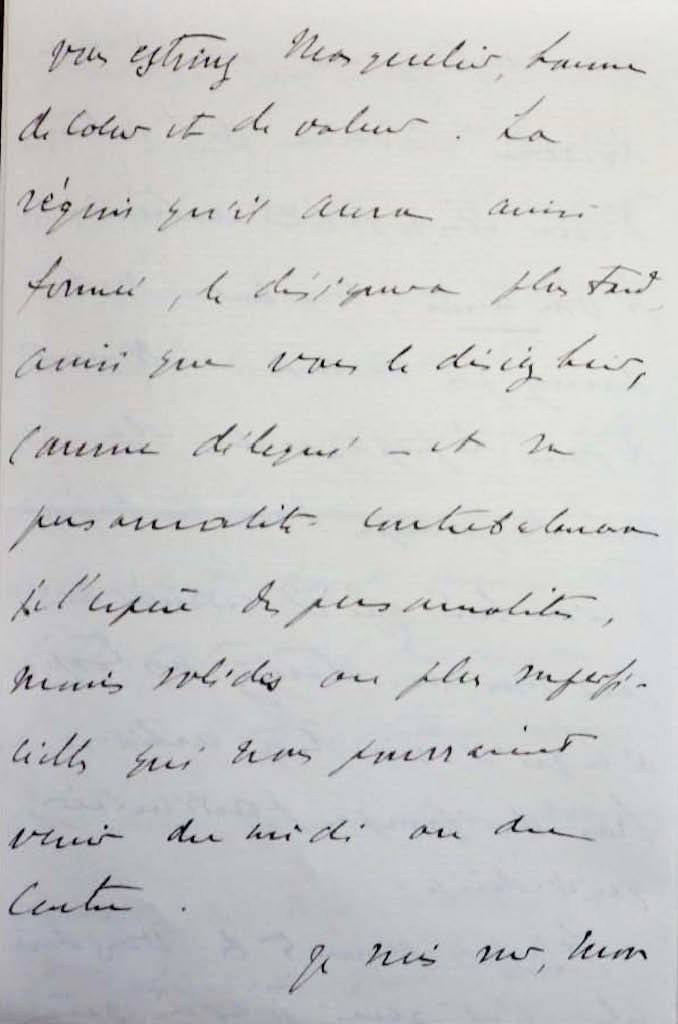 vous estimez Masquelier, homme
de cœur et de valeur. La
région qu'il aura ainsi
formée, le désignera plus tard
ainsi que vous le désigniez,
comme délégué - et sa
personnalité contrebalancera
je l'espère des personnalités,
moins solides ou plus superfi-
cielles qui nous pourraient
venir du midi ou du
Centre.
Je suis sûr, mon